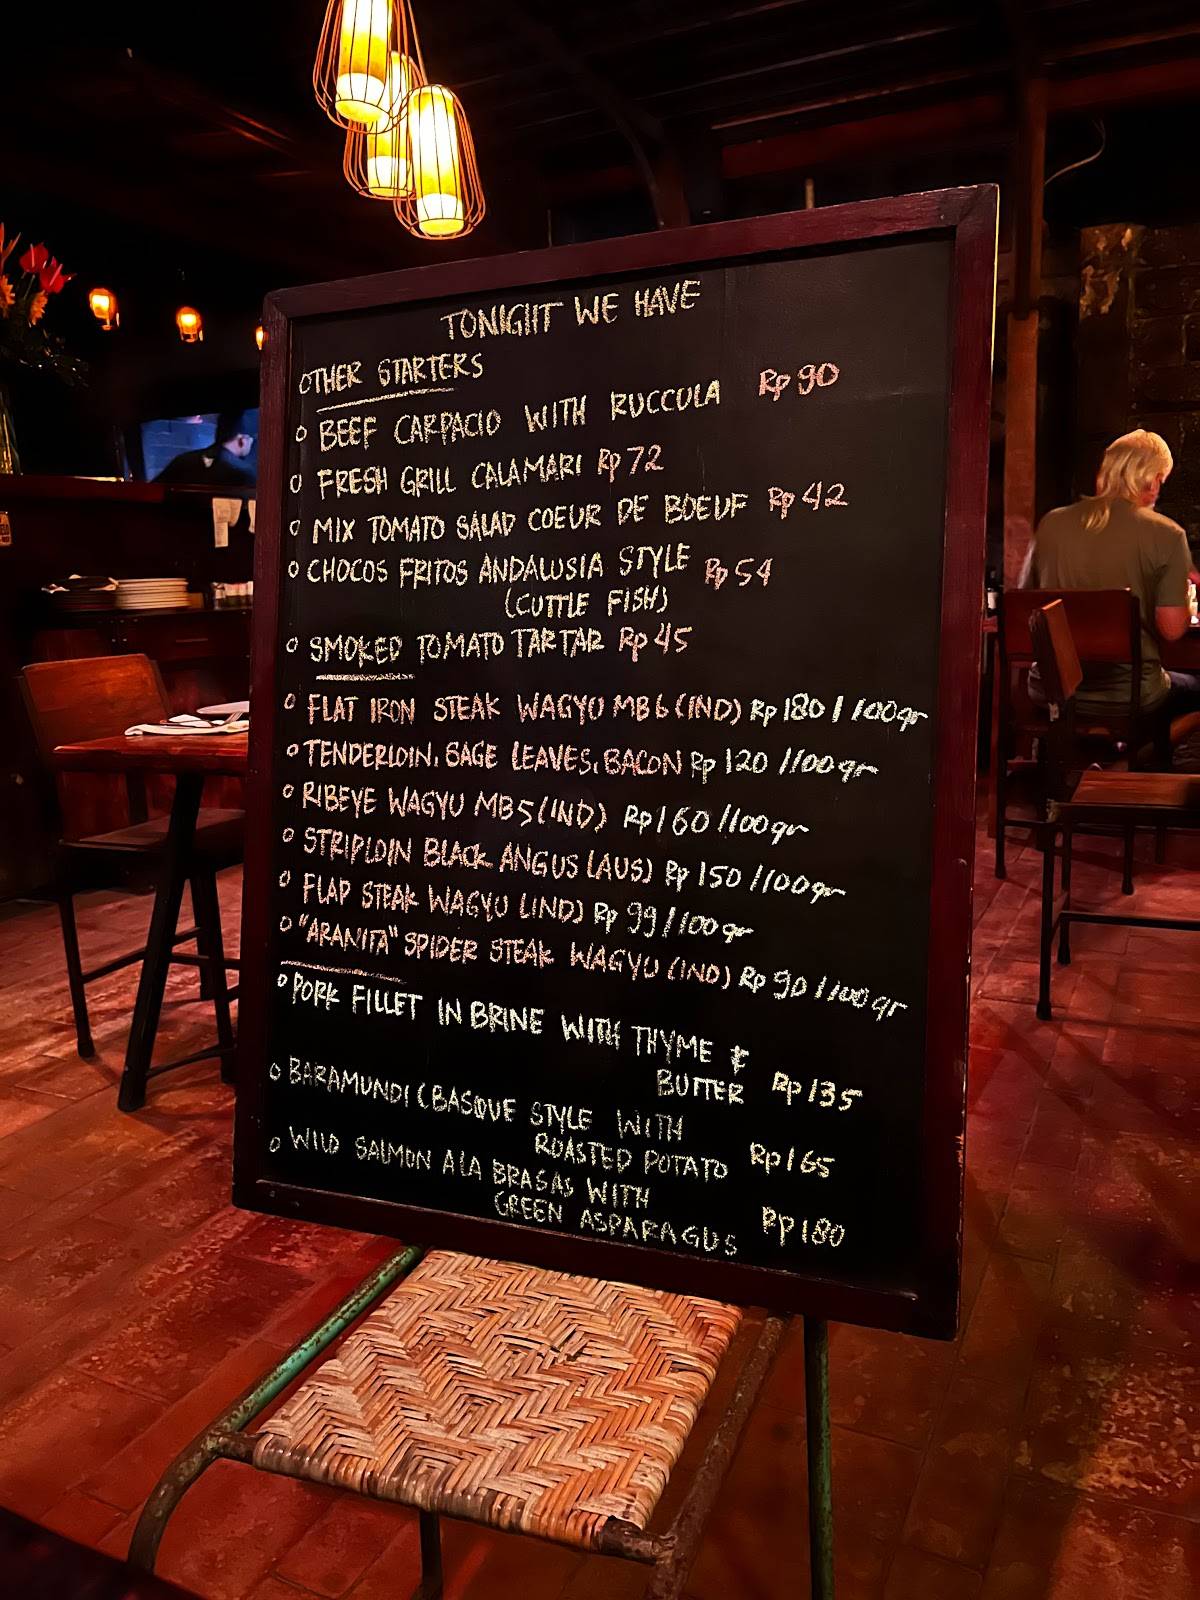 TONIGHT WE HAVE
OTHER STARTERS
o BEEF CARPACIO WITH RUCCULA Rp 90
o FRESH GRILL CALAMARI Rp 72
o MIX TOMATO SALAD COEUR DE BOEUF Rp 42
o CHOCOS FRITOS ANDALUSIA STYLE Rp 54
(CUTTLE FISH)
o SMOKED TOMATO TARTAR Rp 45
o FLAT IRON STEAK WAGYU MB6 (IND) Rp 180 / 100gr
o TENDERLOIN, SAGE LEAVES, BACON Rp 120 /100gr
o RIBEYE WAGYU MB5 (IND) Rp 160 /100gr
o STRIPLOIN BLACK ANGUS (AUS) Rp 150 /100gr
o FLAP STEAK WAGYU (IND) Rp 99 /100gr
o "ARANITA" SPIDER STEAK WAGYU (IND) Rp 90 / 100gr
o PORK FILLET IN BRINE WITH THYME &
BUTTER Rp 135
o BARAMUNDI (BASQUE STYLE WITH
ROASTED POTATO Rp 165
o WILD SALMON ALA BRASAS WITH
GREEN ASPARAGUS Rp 180